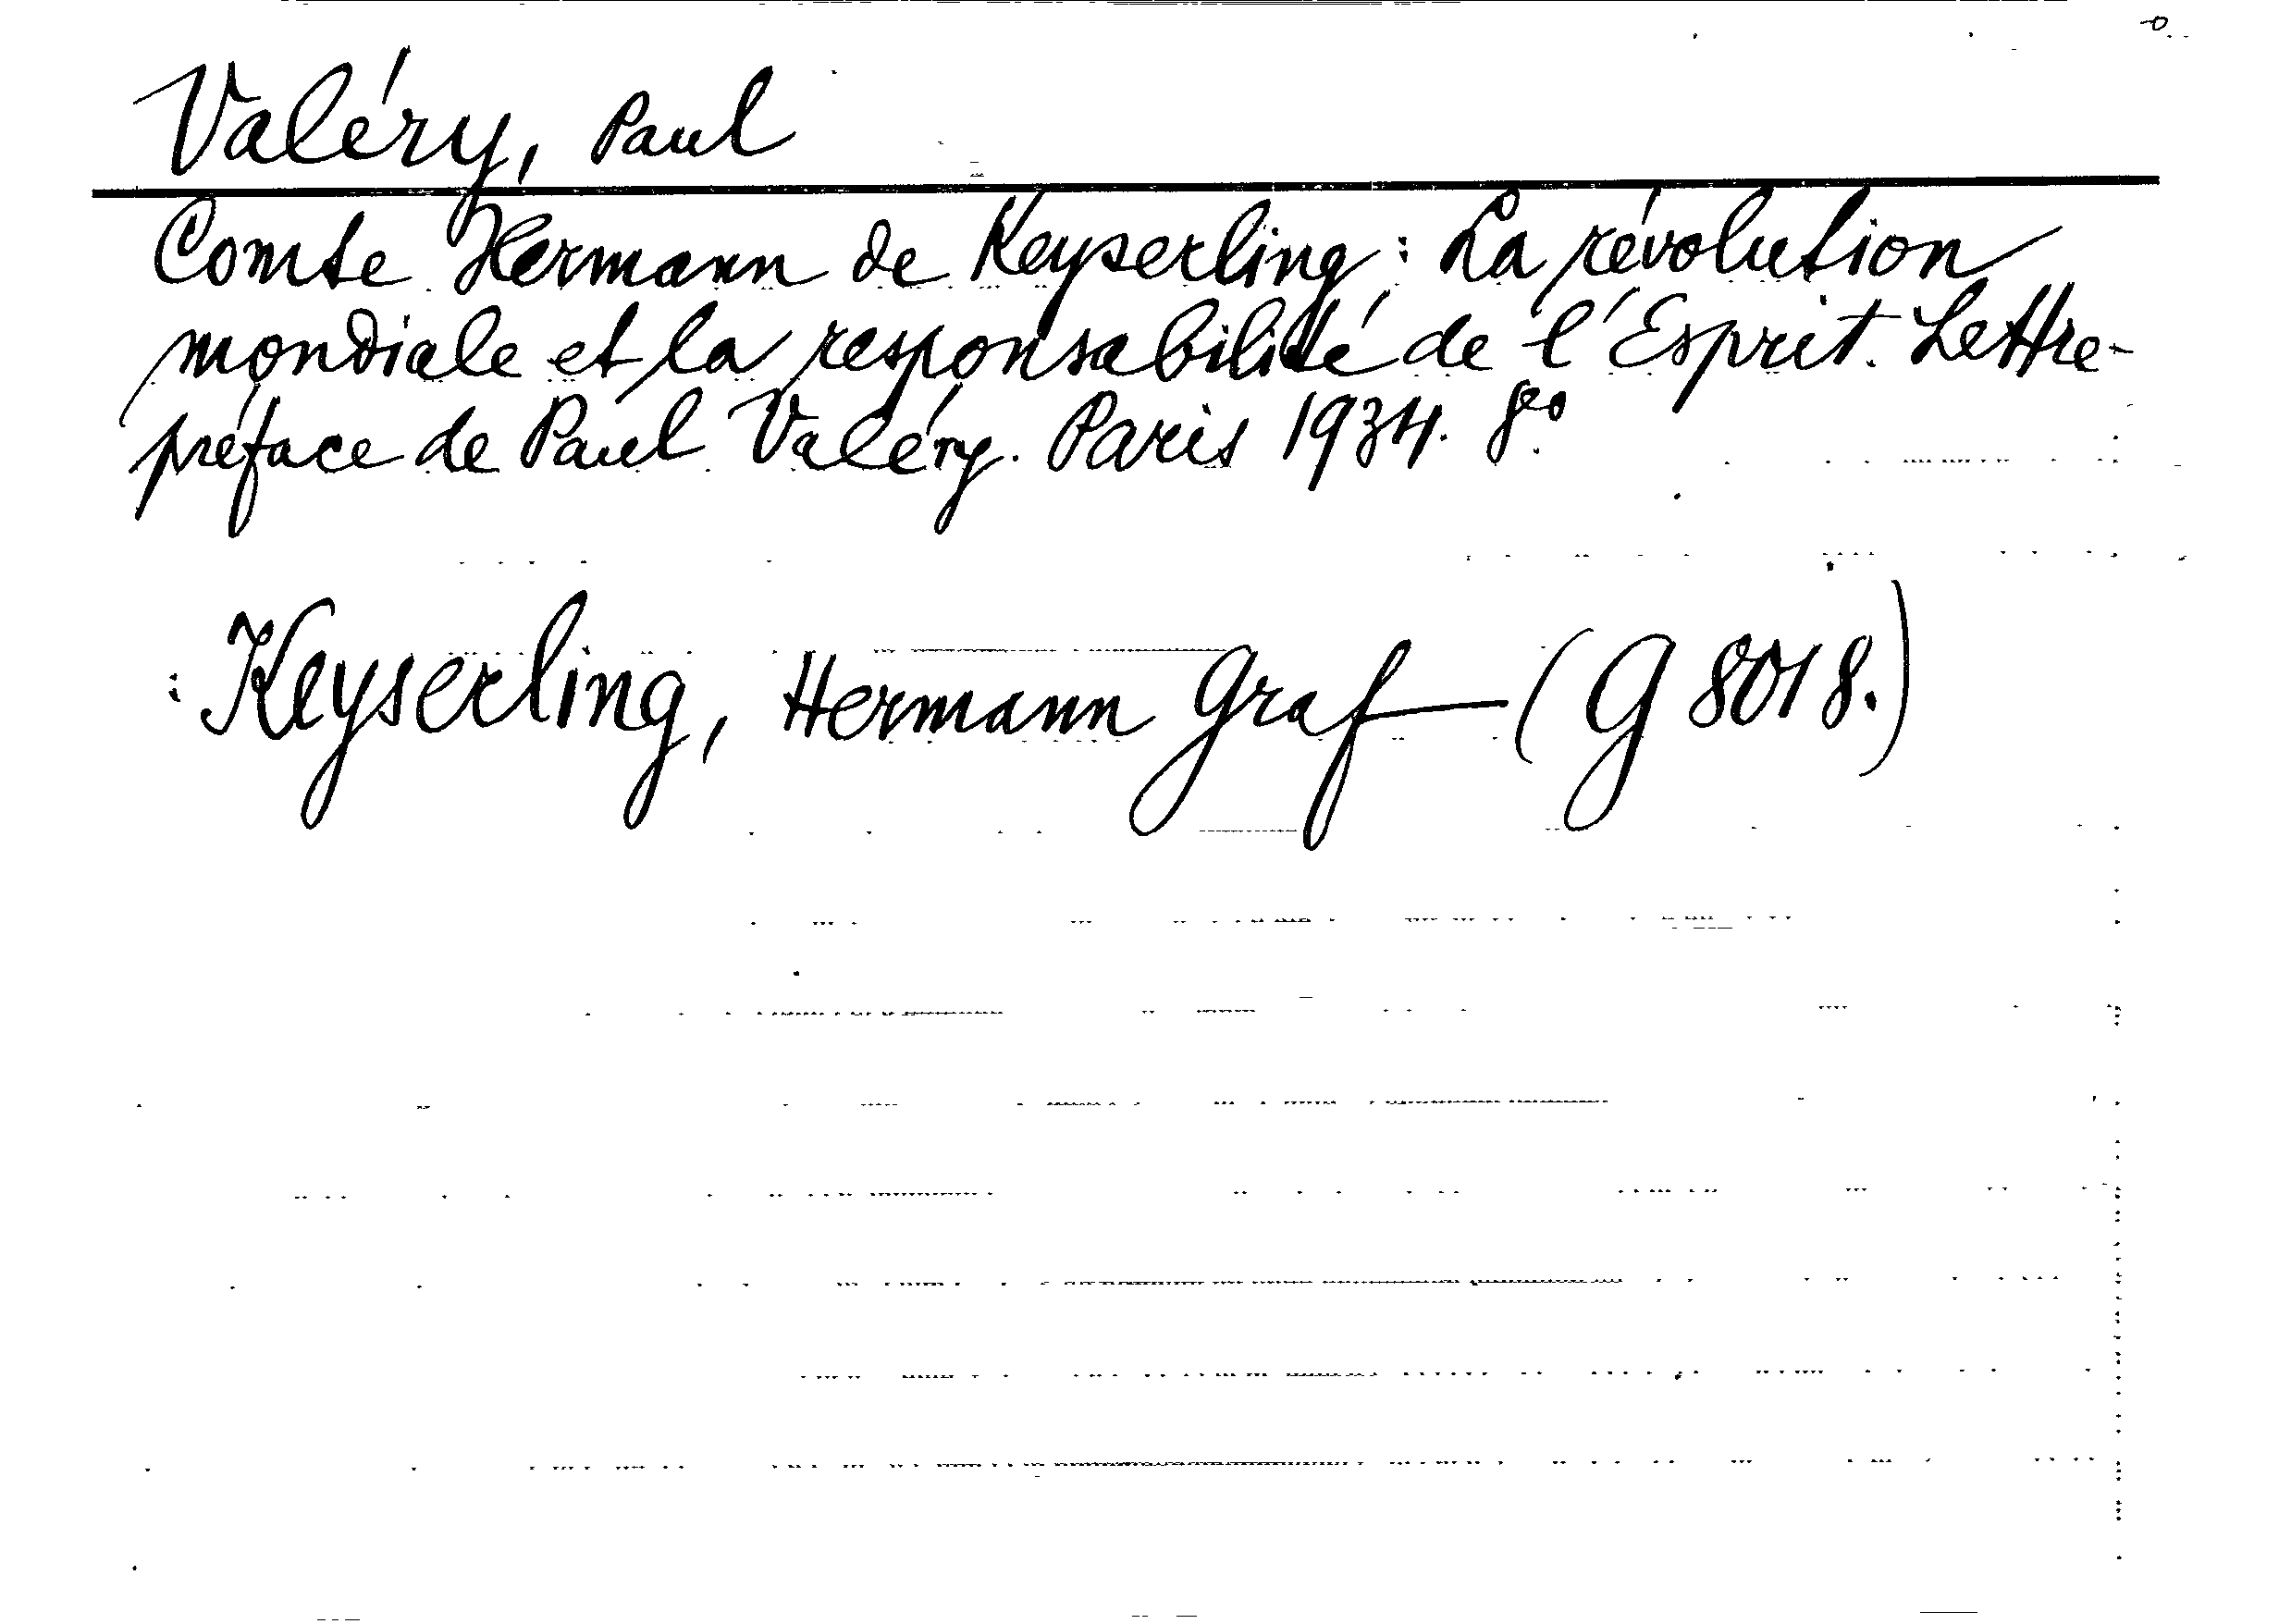 Valéry, Paul
Comte Hermann de Keyserling: La révolution
mondiale et la responsabilité de l'Esprit. Lettre-
préface de Paul Valéry. Paris 1934. 8º
: Keyserling, Hermann Graf — (G 8018.)